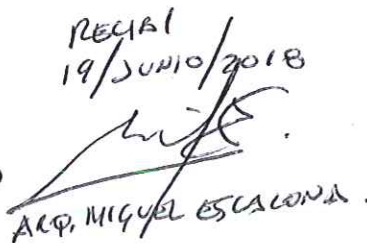 RECIBI
19/JUNIO/2018
ARQ. MIGUEL ESCALONA.